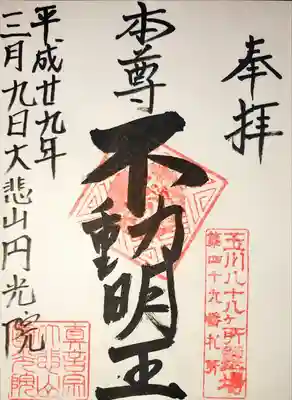 奉拝
本尊
不動明王
平成廿九年
三月九日大悲山円光院
玉川八十八ヶ所霊場
第四十九番札所
真言宗